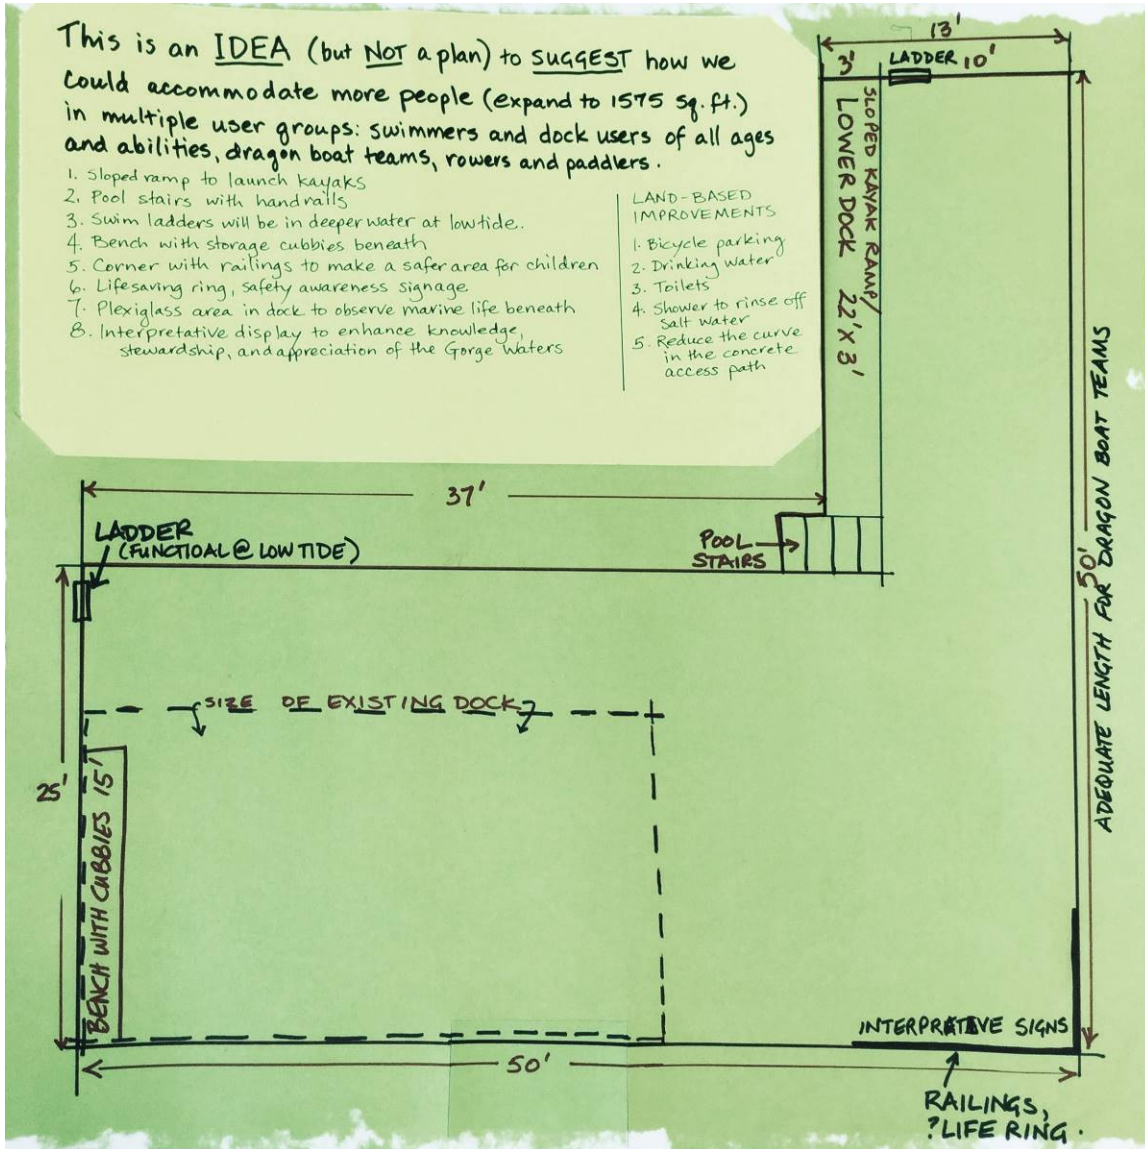 This is an IDEA (but NOT a plan) to SUGGEST how we
could accommodate more people (expand to 1575 sq. ft.)
in multiple user groups: swimmers and dock users of all ages
and abilities, dragon boat teams, rowers and paddlers.
1. Sloped ramp to launch kayaks
2. Pool stairs with handrails
3. Swim ladders will be in deeper water at low tide.
4. Bench with storage cubbies beneath
5. Corner with railings to make a safer area for children
6. Lifesaving ring, safety awareness signage
7. Plexiglass area in dock to observe marine life beneath
8. Interpretative display to enhance knowledge,
stewardship, and appreciation of the Gorge Waters
LAND-BASED
IMPROVEMENTS
1. Bicycle parking
2. Drinking Water
3. Toilets
4. Shower to rinse off
salt water
5. Reduce the curve
in the concrete
access path
13'
3'
LADDER 10'
SLOPED KAYAK RAMP/
LOWER DOCK 22' x 3'
ADEQUATE LENGTH FOR DRAGON BOAT TEAMS
50'
37'
LADDER
(FUNCTIOAL @ LOW TIDE)
POOL
STAIRS
SIZE OF EXISTING DOCK
25'
BENCH WITH CUBBIES 15'
INTERPRETATIVE SIGNS
50'
RAILINGS,
? LIFE RING.